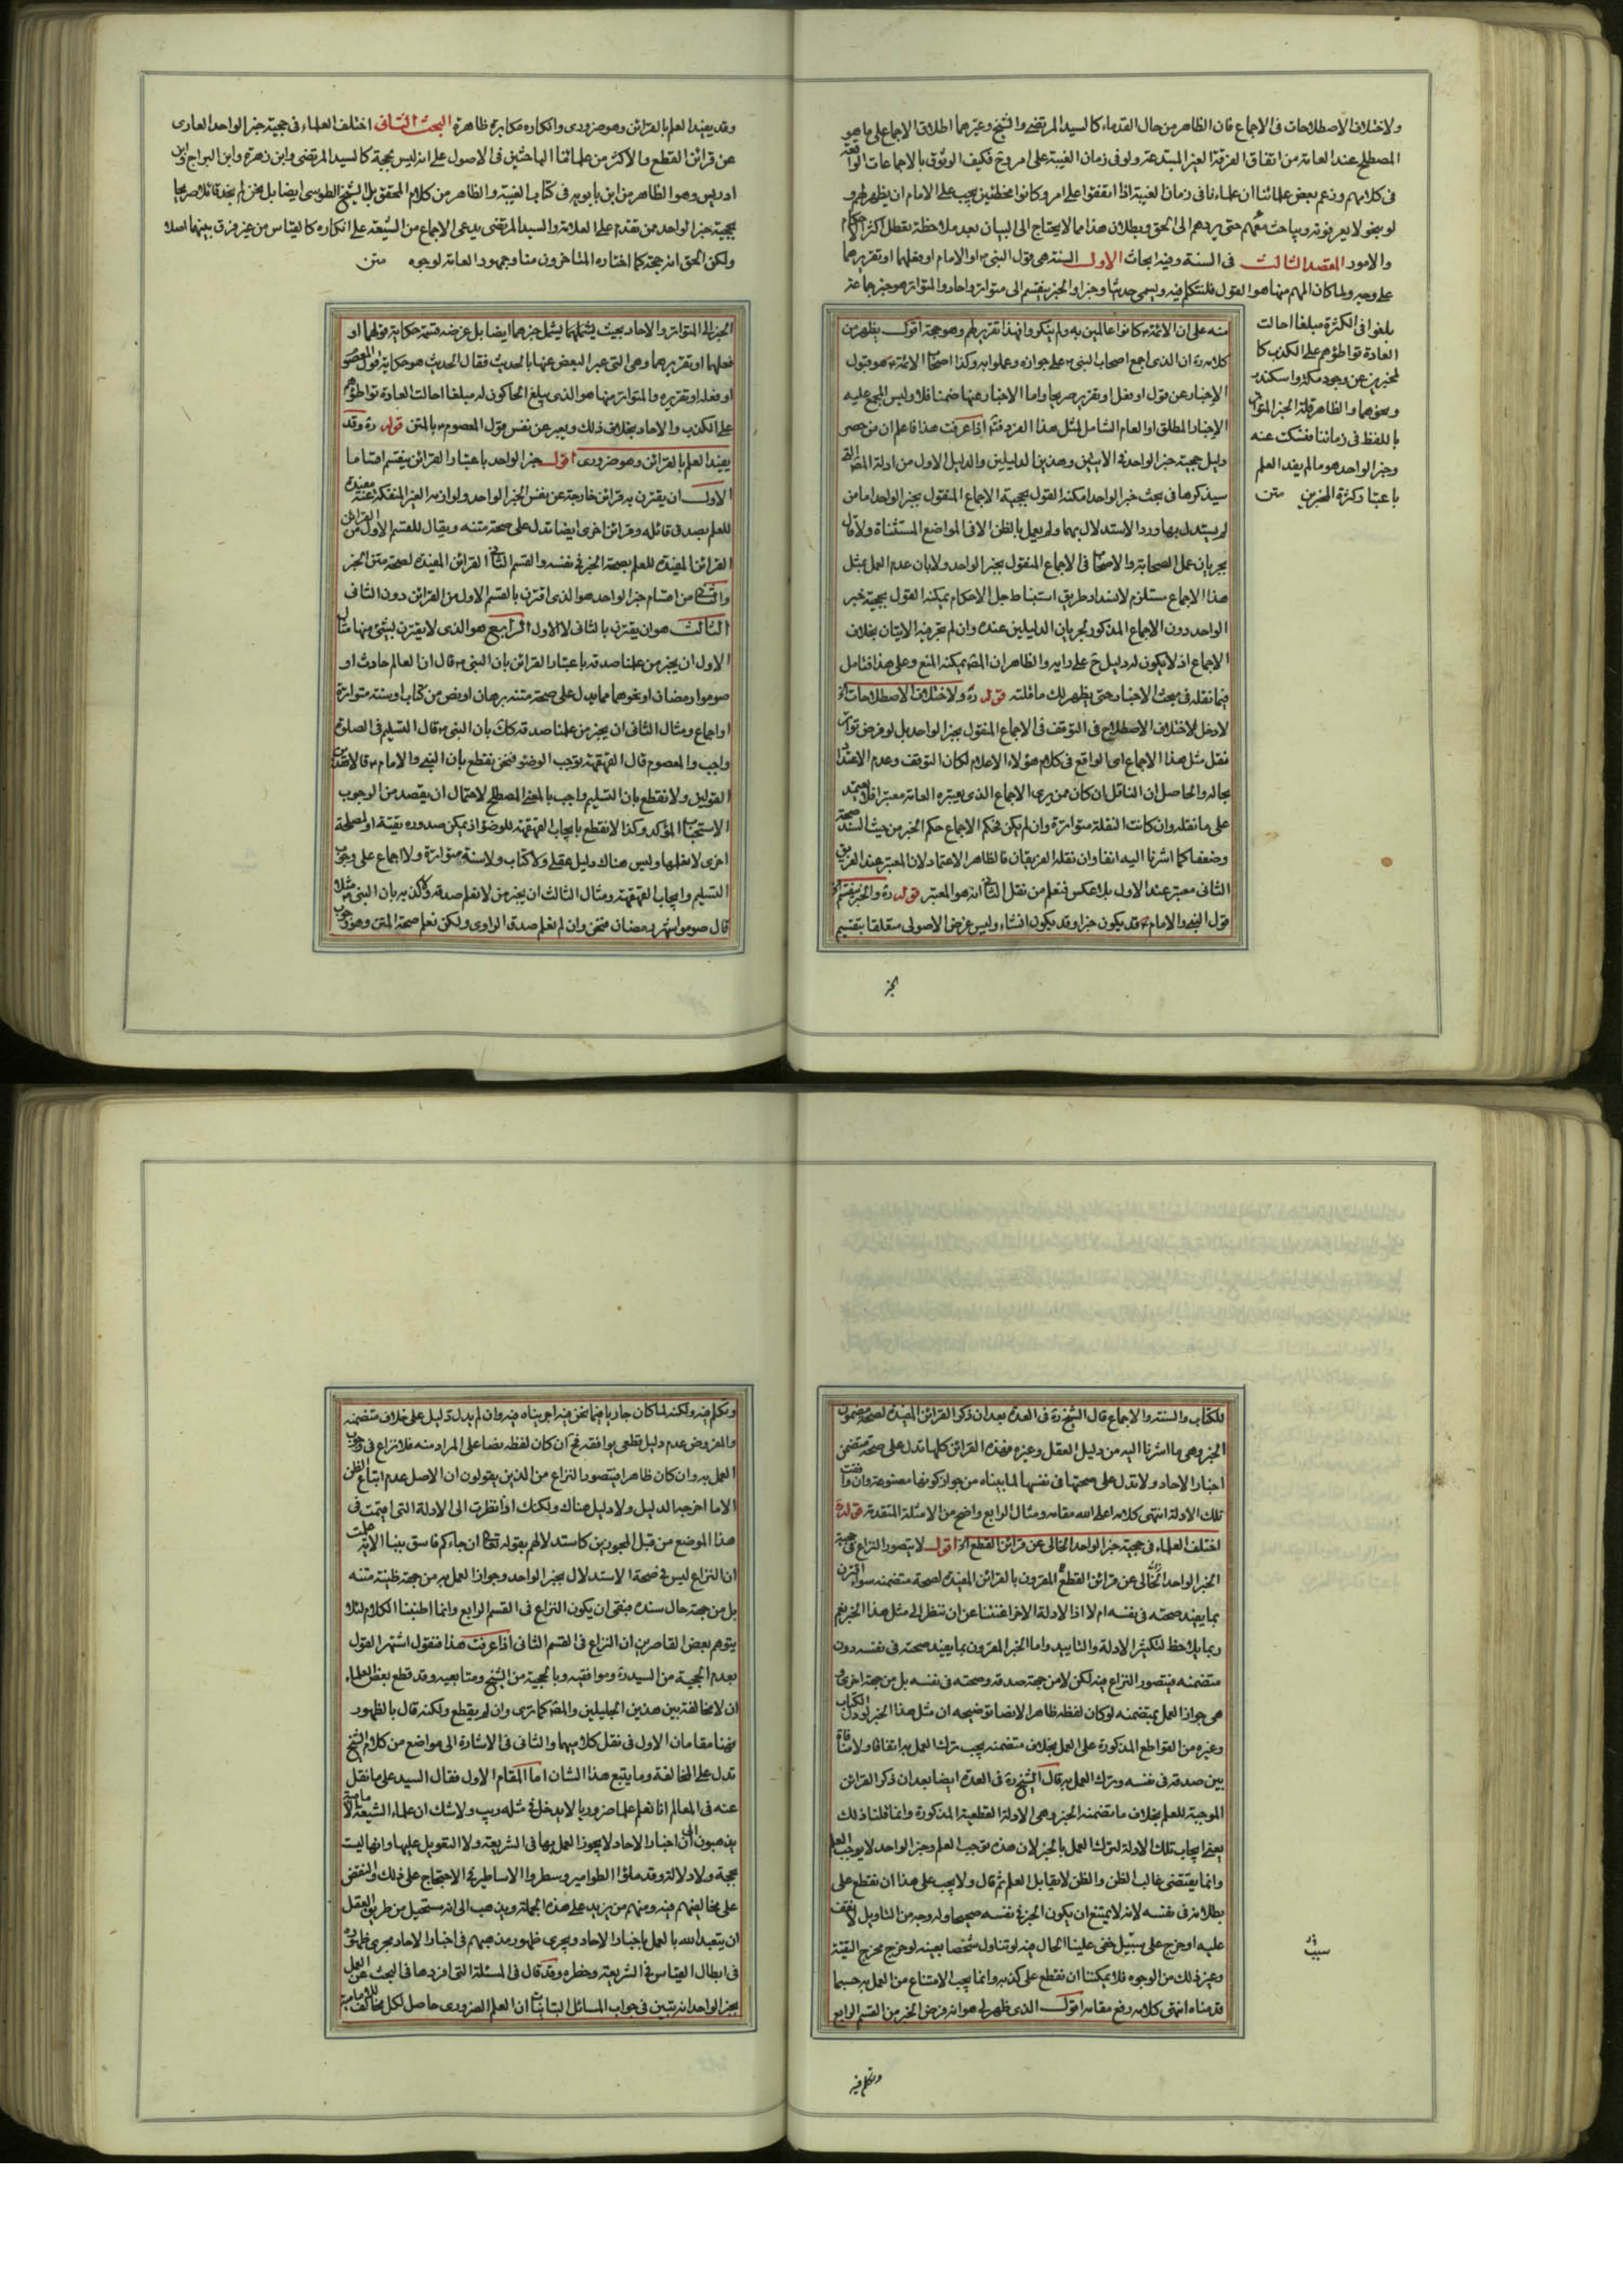 ولاختلاف الاصطلاحات فى الاجماع فان الظاهر من حال القدماء كالسيد المرتضى والشيخ وغيرهما اطلاق الاجماع على ما هو
المصطلح عند العامة من اتفاق الفرقة الغير المبتدعة ولو فى زمان الغيبة على امر وح فكيف الوثوق بالاجماعات الواقعة
فى كلامهم وزعم بعض علمائنا ان علماءنا فى زمان الغيبة اذا اتفقوا على امر وكانوا مخطئين يجب على الامام ان يظهر لهم و
لو بنحو لا يعرفونه ويباحث معهم حتى يردهم الى الحق وبطلان هذا مما لا يحتاج الى البيان بعد ملاحظة تعطل اكثر الاحكام
والامور المقصد الثالث فى السنة وفيه ابحاث الاول السنة هى قول النبى ص او الامام او فعلهما او تقريرهما
على وجه ولما كان المهم منها هو القول فلنتكلم فيه ويسمى حديثا وخبرا والخبر ينقسم الى متواتر واحاد والمتواتر هو خبر جماعة
بلغوا فى الكثرة مبلغا احالت
العادة تواطؤهم على الكذب كا
لمخبرين عن وجود مكة واسكندر
ونحوهما والظاهر قلة الخبر المتواتر
باللفظ فى زماننا فنسكت عنه
وخبر الواحد هو ما لم يفد العلم
باعتبار كثرة المخبرين متن
منه على ان الائمة ع كانوا عالمين به ولم ينكروا فهذا تقرير لهم وهو حجة اقول يظهر من
كلامه ره ان الذى اجمع اصحاب النبى ص على جوازه وعملوا به وكذا اصحاب الائمة ع هو قبول
الاخبار عن قول او فعل او تقرير صريحا واما الاخبار عنها ضمنا فلا وليس المجمع عليه
الاخبار المطلق او العام الشامل لمثل هذا الفرد فتم اذا عرفت هذا فاعلم ان من حصر
دليل حجية خبر الواحد فى الايتين وهذين الدليلين والدليل الاول من ادلة المص التى
سيذكرها فى بحث خبر الواحد امكنه القول بحجية الاجماع المنقول بخبر الواحد اما من
لم يستدل بها ورد الاستدلال بهما ولم يعمل بالظن الا فى المواضع المستثناة ولا قال
بجريان عمل الصحابة والاصحاب فى الاجماع المنقول بخبر الواحد ولا بان عدم العمل بمثل
هذا الاجماع مستلزم لانسداد طريق استنباط جل الاحكام يمكنه القول بحجية خبر
الواحد دون الاجماع المذكور لجريان الدليلين عنده وان لم تقم فيه الايتان بخلاف
الاجماع اذ لا يكون له دليل ح على رايه والظاهر ان المص يمكنه المنع وعلى هذا فتامل
فيما نقله فى مبحث الاخبار حتى يظهر لك ما قلته قوله ره ولاختلاف الاصطلاحات الخ
لا دخل لاختلاف الاصطلاح فى التوقف فى الاجماع المنقول بخبر الواحد بل لو فرض تواتر
نقل مثل هذا الاجماع اى الواقع فى كلام هؤلاء الاعلام لكان التوقف وعدم الاعتداد
بحاله والحاصل ان الناقل ان كان ممن يرى الاجماع الذى يعتبره العامة معتبرا فلا يعتمد
على ما نقله وان كانت النقلة متواترة وان لم يكن فحكم الاجماع حكم الخبر من حيث السند صحة
وضعفا كما اشرنا اليه انفا وان نقله الفريقان فالظاهر الاعتماد لان المعتبر عند الفريق
الثانى معتبر عند الاول بلا عكس فنعلم من نقل الثانى انه هو المعتبر قوله ره والخبر ينقسم الخ
قول النبى والامام ع قد يكون خبرا وقد يكون انشاء وليس غرض الاصولى متعلقا بتقسيم
الخبر
وقد يفيد العلم بالقرائن وهو ضرورى وانكاره مكابرة ظاهرة البحث الثانى اختلف العلماء فى حجية خبر الواحد العارى
عن قرائن القطع والاكثر من علمائنا الباحثين فى الاصول على انه ليس بحجة كالسيد المرتضى وابن زهرة وابن البراج وابن
ادريس وهو الظاهر من ابن بابويه فى كتاب الغيبة والظاهر من كلام المحقق بل الشيخ الطوسى ايضا بل نحن لم نجد قائلا صريحا
بحجية خبر الواحد ممن تقدم على العلامة والسيد المرتضى يدعى الاجماع من الشيعة على انكاره كالقياس من غير فرق بينهما اصلا
ولكن الحق انه حجة كما اختاره المتاخرون منا وجمهور العامة لوجوه متن
الخبر الى المتواتر والاحاد بحيث يشملهما يشمل خبرهما ايضا بل غرضه قسمة حكاية قولهما او
فعلهما او تقريرهما وهى التى عبر البعض عنها بالحديث فقال الحديث هو حكاية قول المعصوم
او فعله او تقريره والمتواتر منها هو الذى يبلغ الحاكون له مبلغا احالت العادة تواطؤهم
على الكذب والاحاد بخلاف ذلك ويعبر عن نفس قول المعصوم ع بالمتن قوله ره وقد
يفيد العلم بالقرائن وهو ضرورى اقول خبر الواحد باعتبار القرائن ينقسم اقساما
الاول ان يقترن به قرائن خارجة عن نفس الخبر الواحد ولوازمه الغير المنفكة عنه مفيدة
للعلم بصدق قائله وقرائن اخرى ايضا تدل على صحة متنه ويقال للقسم الاول من القرائن
القرائن المفيدة للعلم بصحة الخبر فى نفسه والقسم الثانى القرائن المفيدة لصحة متن الخبر
والثانى من اقسام خبر الواحد هو الذى اقترن بالقسم الاول من القرائن دون الثانى
الثالث هو ان يقترن بالثانى لا الاول الرابع هو الذى لا يقترن بشئ منها مثال
الاول ان يخبر من علمنا صدقه باعتبار القرائن بان النبى ص قال ان العالم حادث او
صوموا رمضان او نحوهما مما يدل على صحة متنه برهان او نص من كتاب او سنة متواترة
او اجماع ومثال الثانى ان يخبر من علمنا صدقه كك بان النبى ص قال التسليم فى الصلوة
واجب والمعصوم قال القهقهة توجب الوضوء فنحن نقطع بان النبى والامام ع قالا هذين
القولين ولا نقطع بان التسليم واجب بالمعنى المصطلح لاحتمال ان يقصد من الوجوب
الاستحباب المؤكد وكذا لا نقطع بايجاب القهقهة للوضوء اذ يمكن صدوره تقية او لمصلحة
اخرى لا نعلمها وليس هناك دليل عقلى ولا كتاب ولا سنة متواترة ولا اجماع على وجوب
التسليم وايجاب القهقهة ومثال الثالث ان يخبر من لا نعلم صدقه ولا كذبه بان النبى ص مثلا
قال صوموا شهر رمضان فنحن وان لم نعلم صدق الراوى ولكن نعلم صحة المتن وهو وجوب
للكتاب والسنة والاجماع قال الشيخ ره فى العدة بعد ان ذكر القرائن المفيدة لصحة مضمون
الخبر وهى ما اشرنا اليه من دليل العقل وغيره فهذه القرائن كلها تدل على صحة متضمن
اخبار الاحاد ولا تدل على صحتها فى نفسها لما بيناه من جواز كونها مصنوعة وان وافقت
تلك الادلة انتهى كلامه اعلى الله مقامه ومثال الرابع واضح من الامثلة المتقدمة قوله ره
اختلف العلماء فى حجية خبر الواحد الخالى عن قرائن القطع الخ اقول لا يتصور النزاع فى حجية
الخبر الواحد الخالى عن قرائن القطع المقرون بالقرائن المفيدة لصحة متضمنه سواء اقترن
بما يفيد صحته فى نفسه ام لا اذ الادلة الاخر اغنتنا عن ان ننظر الى مثل هذا الخبر نعم
ربما يلاحظ لتكثير الادلة والتاييد واما الخبر المقرون بما يفيد صحته فى نفسه دون
متضمنه فيتصور النزاع فيه لكن لا من جهة صدقه وصحته فى نفسه بل من جهة اخرى و
هى جواز العمل بمتضمنه لو كان لفظه ظاهرا لا نصا توضيحه ان مثل هذا الخبر لو دل الكتاب
وغيره من القواطع المذكورة على العمل بخلاف متضمنه يجب ترك العمل به اتفاقا ولا منافاة
بين صدقه فى نفسه وترك العمل به قال الشيخ ره فى العدة ايضا بعد ان ذكر القرائن
الموجبة للعلم بخلاف ما تضمنه الخبر وهى الادلة القطعية المذكورة وانما قلنا ذلك
يعنى ايجاب تلك الادلة لترك العمل بالخبر لان هذه توجب العلم وخبر الواحد لا يوجب العلم
وانما يقتضى غالب الظن والظن لا يقابل العلم ثم قال ولا يجب على هذا ان نقطع على
بطلانه فى نفسه لانه لا يمتنع ان يكون الخبر فى نفسه صحيحا وله وجه من التاويل لا نقف
عليه او خرج على سبيل خفى علينا الحال فيه او تناول شخصا بعينه او خرج مخرج التقية
وغير ذلك من الوجوه فلا يمكننا ان نقطع على كذبه وانما يجب الامتناع من العمل به حسبما
قدمناه انتهى كلامه رفع مقامه اقول الذى ظهر لى هو انه فرض الخبر من القسم الرابع
سبب
وتكلم فيه
وتكلم فيه ولكنه لما كان جاريا فيما نحن فيه اجريناه فيه وان لم يدل دليل على خلاف متضمنه
والمفروض عدم دليل قطعى يوافقه فح ان كان لفظه نصا على المراد منه فلا نزاع فى وجوب
العمل به وان كان ظاهرا يتصور النزاع من الذين يقولون ان الاصل عدم اتباع الظن
الا ما اخرجه الدليل ولا دليل هناك ولكنك اذا نظرت الى الادلة التى اقيمت فى
هذا الموضع من قبل المجوزين كاستدلالهم بقوله تعالى ان جاءكم فاسق بنبأ الاية علمت
ان النزاع ليس فى صحة الاستدلال بخبر الواحد وجواز العمل به من جهة ظنية متنه
بل من جهة حال سنده فبقى ان يكون النزاع فى القسم الرابع وانما اطنبنا الكلام لئلا
يتوهم بعض القاصرين ان النزاع فى القسم الثانى اذا عرفت هذا فنقول اشتهر القول
بعدم الحجية من السيد ره وموافقيه وبالحجية من الشيخ ومتابعيه وقد قطع بعض العلماء
ان لا مخالفة بين هذين الجليلين والمص كما ترى وان لم يقطع ولكنه قال بالظهور
فهنا مقامان الاول فى نقل كلاميهما والثانى فى الاشارة الى مواضع من كلام الشيخ
تدل على المخالفة وما يتبع هذا الشان اما المقام الاول فقال السيد على ما نقل
عنه فى المعالم انا نعلم علما ضروريا لا يدخل فى مثله ريب ولا شك ان علماء الشيعة الامامية
يذهبون الى ان اخبار الاحاد لا يجوز العمل بها فى الشريعة ولا التعويل عليها وانها ليست
بحجة ولا دلالة وقد ملؤا الطوامير وسطروا الاساطير فى الاحتجاج على ذلك والنقض
على مخالفيهم فيه ومنهم من يزيد على هذه الجملة ويذهب الى انه مستحيل من طريق العقل
ان يتعبد الله بالعمل باخبار الاحاد ويجرى ظهور مذهبهم فى اخبار الاحاد مجرى ظهوره
فى ابطال القياس فى الشريعة وحظره وقد قال فى المسئلة التى افردها فى البحث عن العمل
بخبر الواحد انه تبين فى جواب المسائل التبانيات ان العلم الضرورى حاصل لكل مخالف للامامية